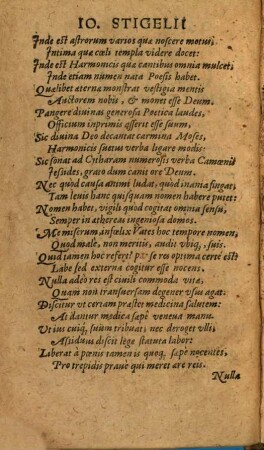 IO. STIGELII
Inde est astrorum varios quæ noscere motus,
Intima quæ cœli templa videre docet:
Inde est Harmonicis quæ cantibus omnia mulcet,
Inde etiam numen nata Poesis habet.
Quælibet æterna monstrat vestigia mentis
Auctorem nobis, & monet esse Deum.
Pangere divinas generosa Poetica laudes,
Officium inprimis asserit esse suum,
Sic divina Deo decantat carmina Moses,
Harmonicis suetus verba ligare modis:
Sic sonat ad Cytharam numerosis verba Camœnis
Jesides, grato dum canit ore Deum.
Nec quòd causa animi ludat, quòd inania fingat,
Tam levis hanc quisquam nomen habere putet:
Nomen habet, vigili quòd cogitat omnia sensu,
Semper in æthereas ingeniosa domos.
Me miserum infœlix Vates hoc tempore nomen,
Quòd malè, non meritis, audit vbiq, suis.
Quid tamen hoc refert? pær se res optima certè est
Labe sed externa cogitur esse nocens.
Nulla adeò res est civili commoda vitæ,
Quam non transversam degener vsus agat:
Discitur vt certam præstet medicina salutem:
At dantur medica sæpè venena manu.
Vt ius cuiq, suum tribuat, nec deroget vlli,
Assiduus discit lege statuta labor:
Liberat à pœnis tamen is quoq, sæpè nocentes,
Pro trepidis pravè qui meret ære reis.
Nulla